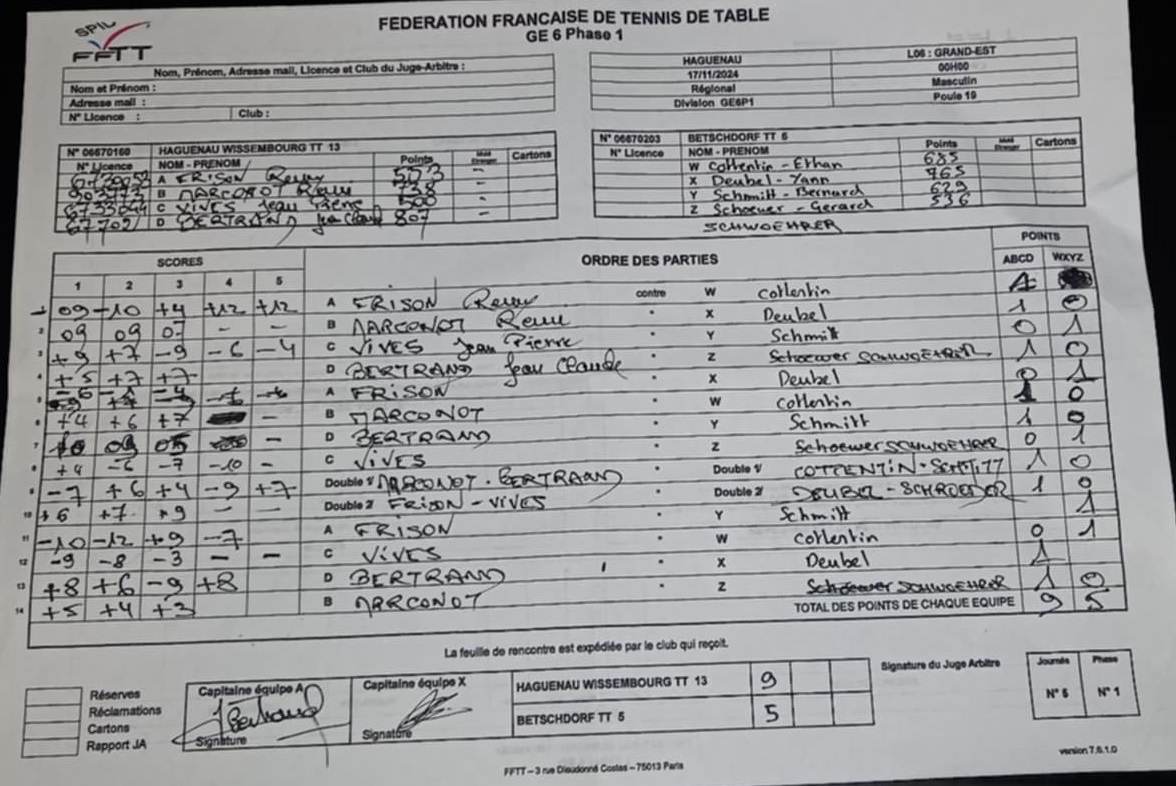 SPID
FFTT
FEDERATION FRANCAISE DE TENNIS DE TABLE
GE 6 Phase 1
Nom, Prénom, Adresse mail, Licence et Club du Juge-Arbitre :
Nom et Prénom :
Adresse mail :
N° Licence : Club :
HAGUENAU L06 : GRAND-EST
17/11/2024 00H00
Régional Masculin
Division GE6P1 Poule 19
N° 06670160 HAGUENAU WISSEMBOURG TT 13
N° Licence NOM - PRENOM Points Cartons
A FRISON Remy 573 -
B MARCONOT Remi 738 -
C VIVES Jean Pierre 500 -
D BERTRAND Jean Claude 807 -
N° 06670203 BETSCHDORF TT 5
N° Licence NOM - PRENOM Points Cartons
W Cottentin - Ethan 685
X Deubel - Yann 765
Y Schmitt - Bernard 629
Z Schoewer - Gerard 536
SCHWOEHRER
SCORES ORDRE DES PARTIES POINTS
1 2 3 4 5 ABCD WXYZ
1 09 -10 +4 +12 +12 A FRISON Remy contre W Cottentin 1
2 09 09 07 - - B MARCONOT Remi " X Deubel 1 0
3 +9 +7 -9 -6 -4 C VIVES Jean Pierre " Y Schmitt 0 1
4 +5 +7 +7 D BERTRAND Jean Claude " Z Schoewer SCHWOEHRER 1 0
5 -6 -4 A FRISON " X Deubel 0 1
6 +4 +6 +7 - B MARCONOT " W Cottentin 1 0
7 09 05 - D BERTRAND " Y Schmitt 1 0
8 +4 -6 -7 -10 - C VIVES " Z Schoewer SCHWOEHRER 0 1
9 -7 +6 +4 -9 +7 Double 1 MARCONOT - BERTRAND " Double 1 COTTENTIN - SCHMITT 1 0
10 +6 +7 +9 - - Double 2 FRISON - VIVES " Double 2 DEUBEL - SCHROEDER 1 0
11 -10 -12 +9 -7 A FRISON " Y Schmitt 1
12 -9 -8 -3 - - C VIVES " W Cottentin 0 1
13 +8 +6 -9 +8 D BERTRAND " X Deubel 1
14 +5 +4 +3 B MARCONOT " Z Schoewer SCHWOEHRER 1 0
TOTAL DES POINTS DE CHAQUE EQUIPE 9 5
La feuille de rencontre est expédiée par le club qui reçoit.
Réserves
Réclamations
Cartons
Rapport JA
Capitaine équipe A
Bertrand
Signature
Capitaine équipe X
Signature
HAGUENAU WISSEMBOURG TT 13 9
BETSCHDORF TT 5 5
Signature du Juge Arbitre
Journée Phase
N° 5 N° 1
version 7.6.1.0
FFTT – 3 rue Dieudonné Costes – 75013 Paris